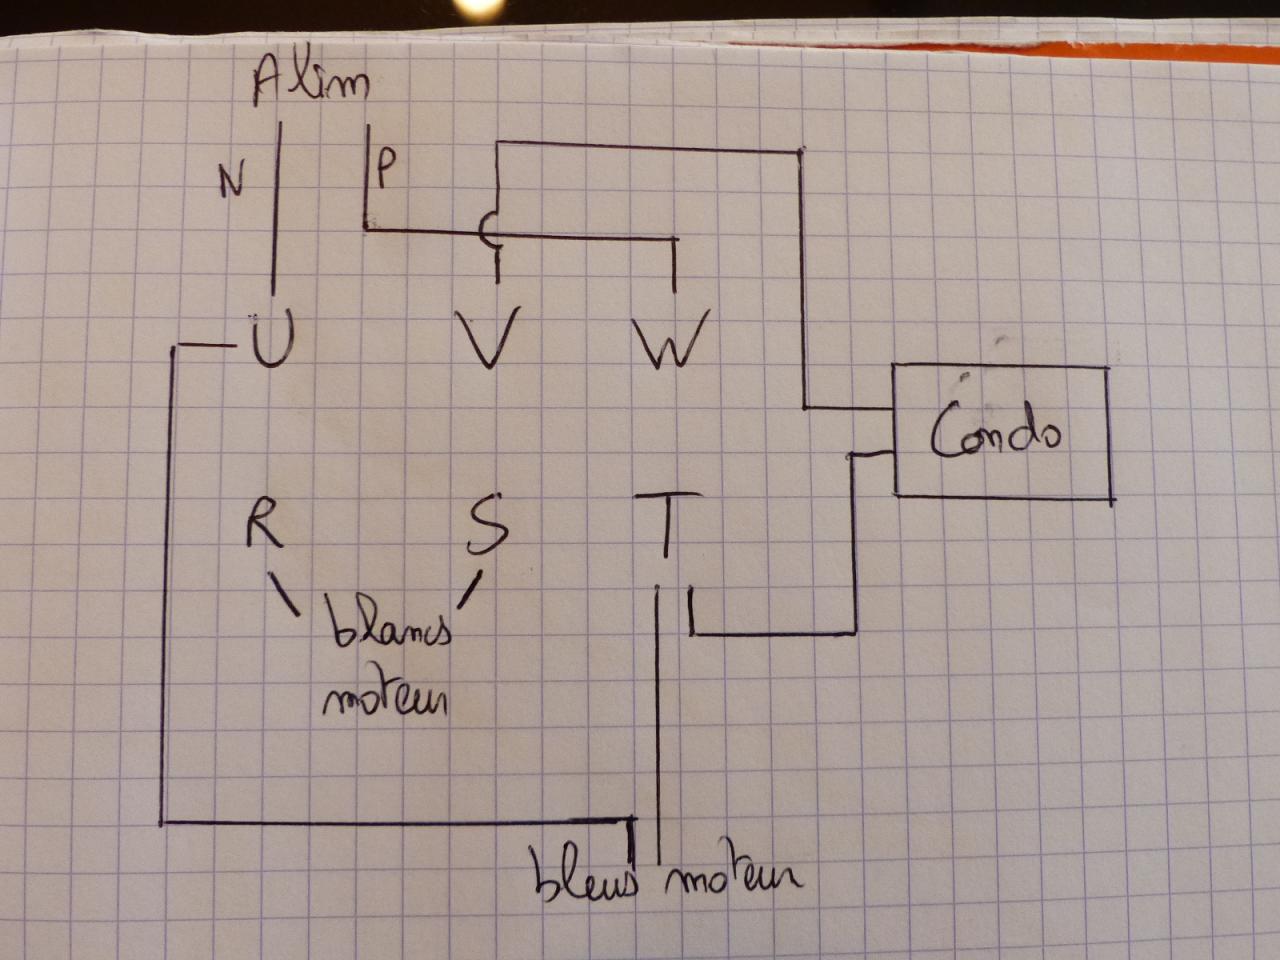 Alim
N P
U V W
Condo
R S T
blancs
moteur
bleus moteur